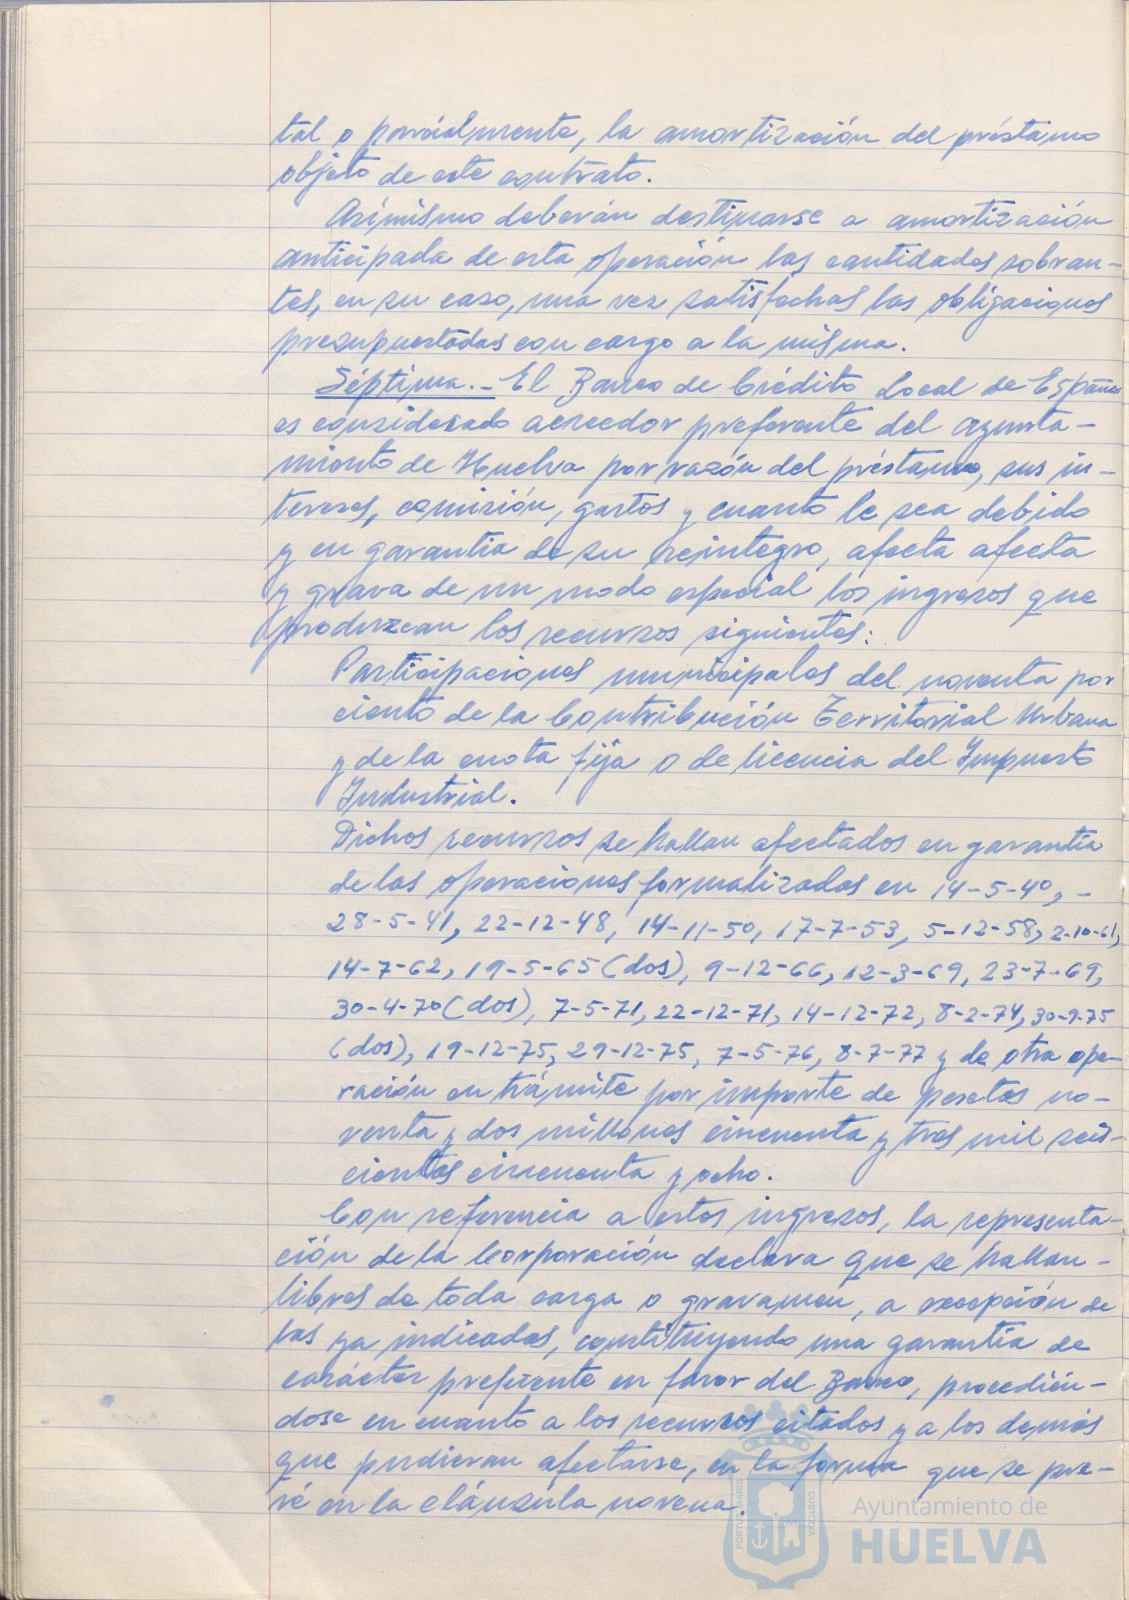 tal o parcialmente, la amortización del préstamo
objeto de este contrato.
Asímismo deberán destinarse a amortización
anticipada de esta operación las cantidades sobran-
tes, en su caso, una vez satisfechas las obligaciones
presupuestadas con cargo a la misma.
Séptima.- El Banco de Crédito Local de España
es considerado acreedor preferente del ayunta-
miento de Huelva por razón del préstamo, sus in-
tereses, comisión, gastos y cuanto le sea debido
y en garantía de su reintegro, afecta afecta
y grava de un modo especial los ingresos que
produzcan los recursos siguientes:
Participaciones municipales del noventa por
ciento de la Contribución Territorial Urbana
y de la cuota fija o de licencia del Impuesto
Industrial.
Dichos recursos se hallan afectados en garantía
de las operaciones formalizadas en 14-5-40, -
28-5-41, 22-12-48, 14-11-50, 17-7-53, 5-12-58, 2-10-61,
14-7-62, 19-5-65 (dos), 9-12-66, 12-3-69, 23-7-69,
30-4-70 (dos), 7-5-71, 22-12-71, 14-12-72, 8-2-74, 30-9-75
(dos), 19-12-75, 29-12-75, 7-5-76, 8-7-77 y de otra ope-
ración en trámite por importe de pesetas no-
venta y dos millones cincuenta y tres mil seis-
cientas cincuenta y ocho.
Con referencia a estos ingresos, la representa-
ción de la Corporación declara que se hallan -
libres de toda carga o gravamen, a excepción de
las ya indicadas, constituyendo una garantía de
carácter preferente en favor del Banco, procedién-
dose en cuanto a los recursos citados y a los demás
que pudieran afectarse, en la forma que se pre-
vé en la cláusula novena.
Ayuntamiento de
HUELVA
PORTUS MARIS
CUSTODIA